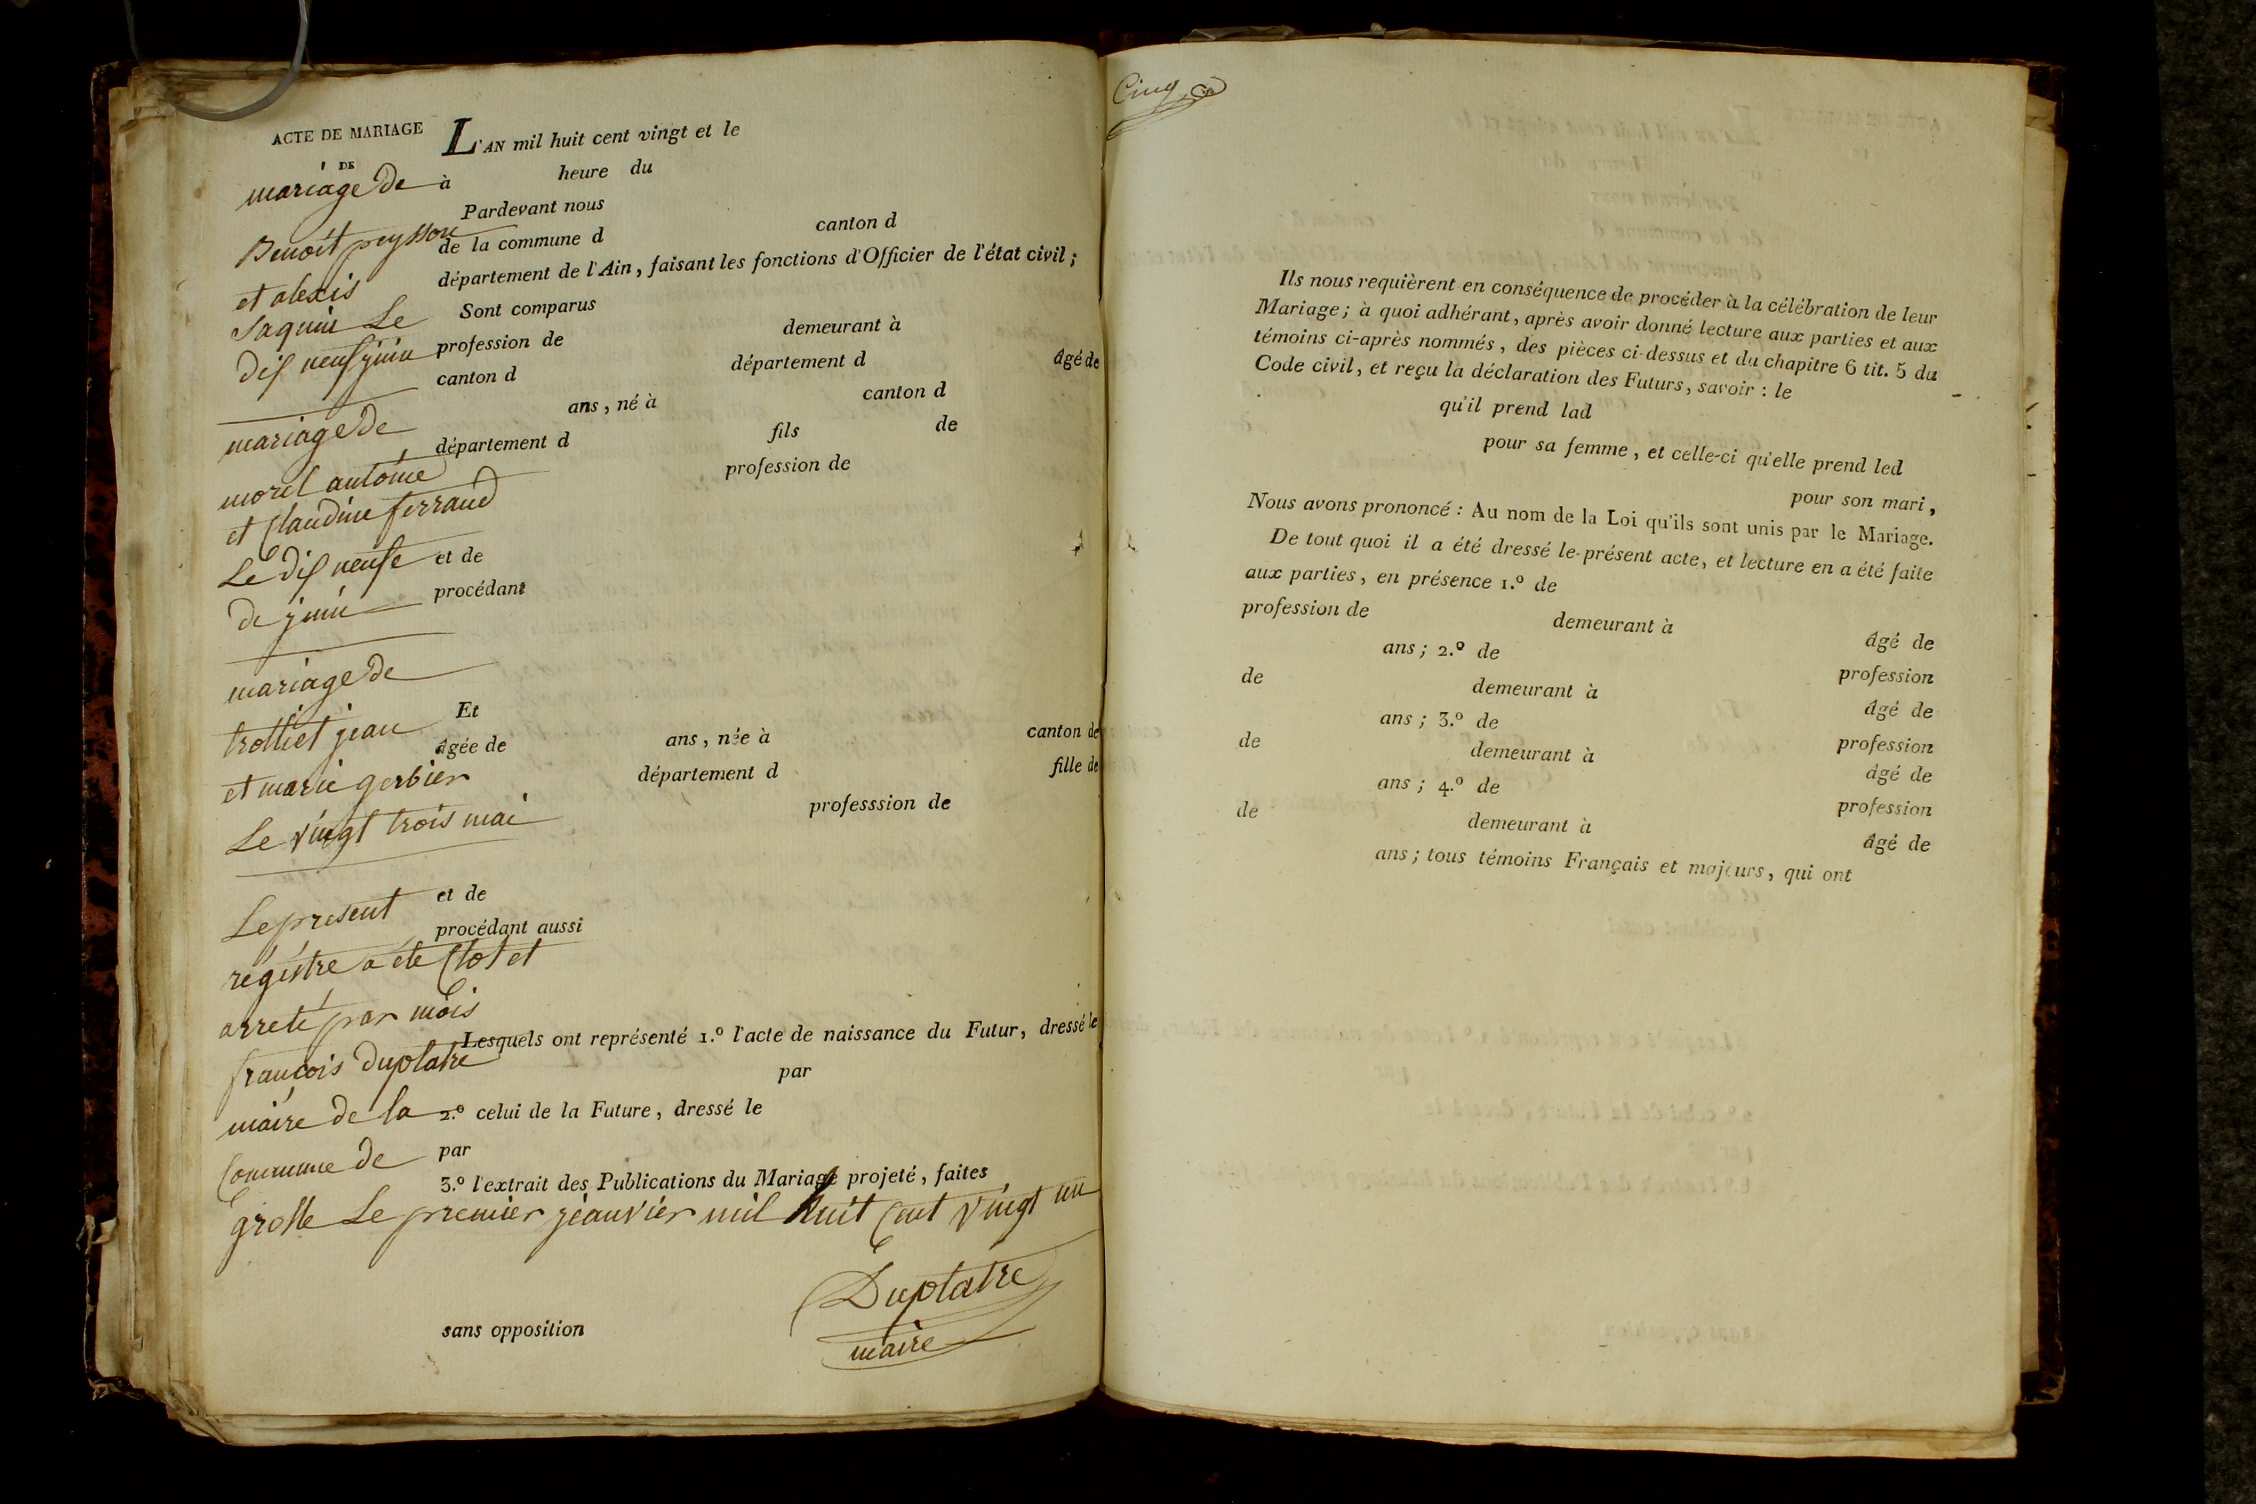 ACTE DE MARIAGE
DE
mariage de
Benoit peysson
et alexis
Jaquin Le
dix neuf juin
mariage de
morel antoine
et Claudine ferraud
Le dix neufe
de juin
mariage de
trolliet jean
et marie gerbier
Le vingt trois mai
Le present
régistre a été Clos et
arreté par mois
françois Duplatre
maire de la
Commune de
groslle Le premier jeanvier mil huit Cent vingt un
Duplatre
maire
L'AN mil huit cent vingt et le
à heure du
Pardevant nous
de la commune d canton d
département de l'Ain, faisant les fonctions d'Officier de l'état civil;
Sont comparus
profession de demeurant à
canton d département d âgé de
ans, né à canton d
département d fils de
profession de
et de
procédant
Et
âgée de ans, née à canton de
département d fille de
professsion de
et de
procédant aussi
Lesquels ont représenté 1.º l'acte de naissance du Futur, dressé le
par
2.º celui de la Future, dressé le
par
3.º l'extrait des Publications du Mariage projeté, faites
sans opposition
Cinq
Ils nous requièrent en conséquence de procéder à la célébration de leur
Mariage; à quoi adhérant, après avoir donné lecture aux parties et aux
témoins ci-après nommés, des pièces ci-dessus et du chapitre 6 tit. 5 du
Code civil, et reçu la déclaration des Futurs, savoir: le
qu'il prend lad
pour sa femme, et celle-ci qu'elle prend led
pour son mari,
Nous avons prononcé: Au nom de la Loi qu'ils sont unis par le Mariage.
De tout quoi il a été dressé le présent acte, et lecture en a été faite
aux parties, en présence 1.º de
profession de demeurant à âgé de
ans; 2.º de profession
de demeurant à âgé de
ans; 3.º de profession
de demeurant à âgé de
ans; 4.º de profession
de demeurant à âgé de
ans; tous témoins Français et majeurs, qui ont